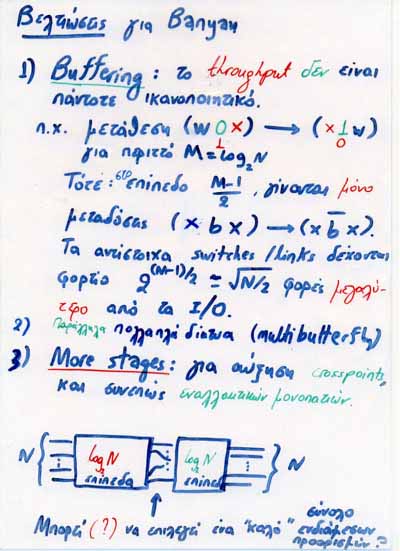 Βελτιώσεις για Banyan
1) Buffering: το throughput δεν είναι
πάντοτε ικανοποιητικό.
π.χ. μετάθεση (w 0 x) → (x 1 w)
1 0
για περιττό M = log₂N
Τότε: στο επίπεδο (M-1)/2, γίνονται μόνο
μεταδόσεις (x b x) → (x b̄ x).
Τα αντίστοιχα switches/links δέχονται
φορτίο 2^((M-1)/2) = √(N/2) φορές μεγαλύ-
τερο από τα I/O.
2) Παράλληλα πολλαπλά δίκτυα (multibutterfly)
3) More stages: για αύξηση crosspoints,
και συνεπώς εναλλακτικών μονοπατιών.
N { log₂N log₂N } N
επίπεδα επίπεδα
Μπορεί (?) να επιλεγεί ένα "καλό" σύνολο
ενδιάμεσων
προορισμών?